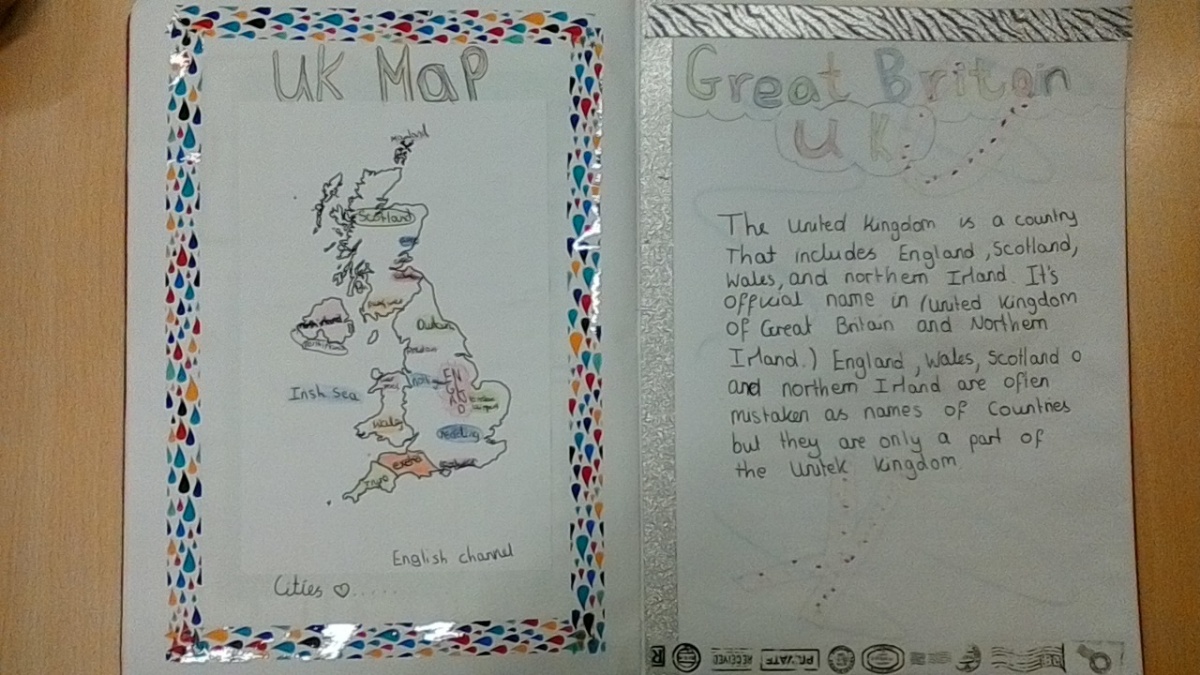 UK MaP
Scotland
Irish Sea
EN
GL
AN
D
Wales
exeter
English channel
Cities ♡......
Great Britain
UK
The united Kingdom is a country
That includes England, Scotland,
Wales, and northern Irland. It's
official name in (united Kingdom
of Great Britain and Northern
Irland.) England, Wales, Scotland o
and northern Irland are often
mistaken as names of countries
but they are only a part of
the Unitek Kingdom.
PRIVATE
RECEIVED